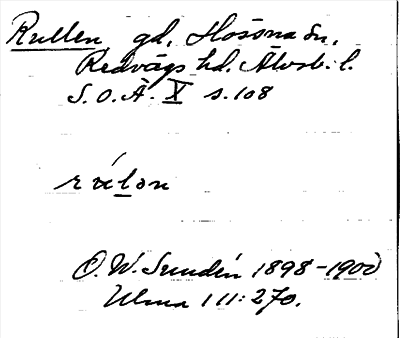 Rullen gd, Hössna sn,
Redvägs hd. Älvsb. l.
S. O. Ä. X s. 108
O. W. Sundén 1898-1900
Ulma 111:270.